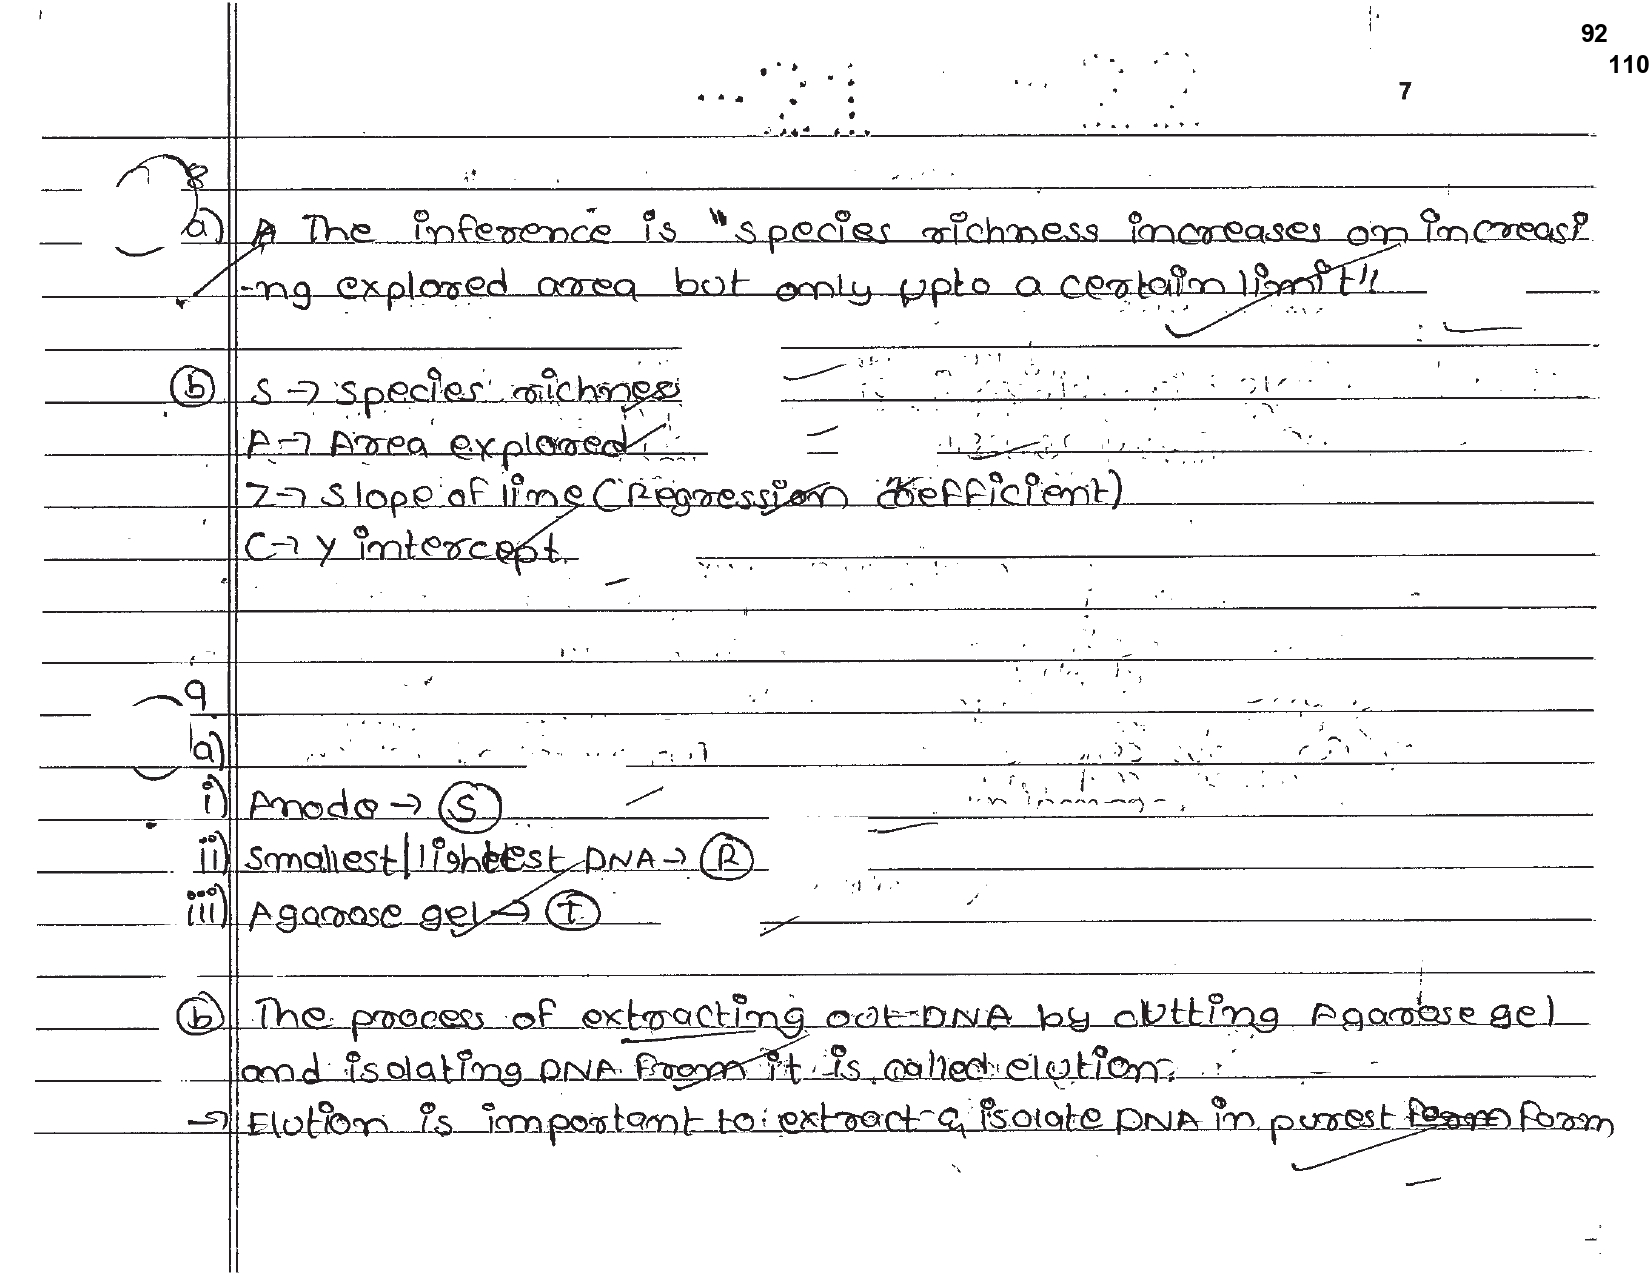 92
110
7
8
a) The inference is "species richness increases on increasi
-ng explored area but only upto a certain limit"
(b) S → species richness
A → Area explored
Z → slope of line (Regression coefficient)
C → y intercept.
9
a)
i) Anode → (S)
ii) Smallest/lightest DNA → (R)
iii) Agarose gel → (T)
(b) The process of extracting out DNA by cutting Agarose gel
and isolating DNA from it is called elution.
→ Elution is important to extract & isolate DNA in purest form